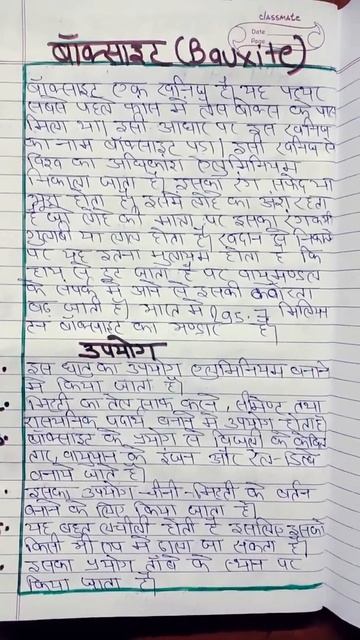 classmate
Date
Page
बॉक्साइट (Bauxite)
बॉक्साइट एक खनिज है। यह पत्थर
सबसे पहले फ्रांस में लेस बॉक्स के पास
मिला था। इसी आधार पर इस खनिज
का नाम बॉक्साइट पड़ा। इसी खनिज से
विश्व का अधिकांश एलुमिनियम
निकाला जाता है। इसका रंग सफेद या
भूरा होता है। इसमें लोहे का अंश रहता
है जो लोहे की मात्रा पर इसका रंग कभी
गुलाबी या लाल होता है। खदान से निकालने
पर यह इतना मुलायम होता है कि
हाथ से टूट जाता है पर वायुमण्डल
के संपर्क में आने से इसकी कठोरता
बढ़ जाती है। भारत में 195.7 मिलियन
टन बॉक्साइट का भण्डार है।
उपयोग
इस धातु का उपयोग एलुमिनियम बनाने
में किया जाता है।
मिट्टी का तेल साफ करने, सीमेण्ट तथा
रासायनिक पदार्थ बनाने में उपयोग होता है।
बॉक्साइट के प्रयोग से बिजली के
तार, वायुयान के इंजन और रेल-डिब्बे
बनाये जाते हैं।
इसका उपयोग चीनी-मिट्टी के बर्तन
बनाने के लिए किया जाता है।
यह बहुत लचीली होती है इसलिए इसको
किसी भी रूप में ढाला जा सकता है।
इसका प्रयोग तांबे के स्थान पर
किया जाता है।